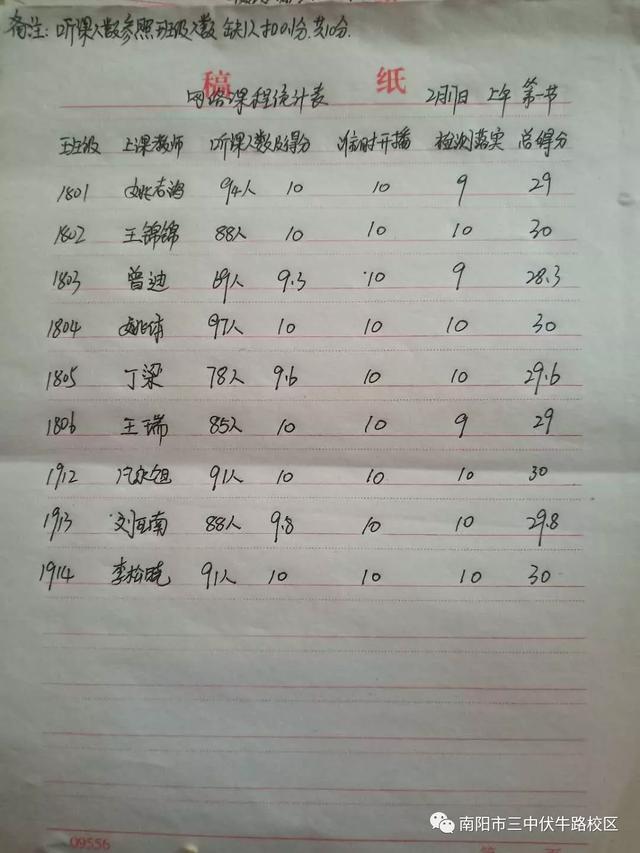 备注:听课人数参照班级人数 缺1人扣0.1分.共10分.
稿 纸
网络课程统计表 2月17日 上午 第一节
班级 上课教师 听课人数及得分 准时开播 检测落实 总得分
1801 94人 10 10 9 29
1802 王锦锦 88人 10 10 10 30
1803 曾迪 69人 9.3 10 9 28.3
1804 97人 10 10 10 30
1805 丁梁 78人 9.6 10 10 29.6
1806 王瑞 85人 10 10 9 29
1912 91人 10 10 10 30
1913 刘亚南 88人 9.8 10 10 29.8
1914 李松晓 91人 10 10 10 30
09556 第 页
南阳市三中伏牛路校区